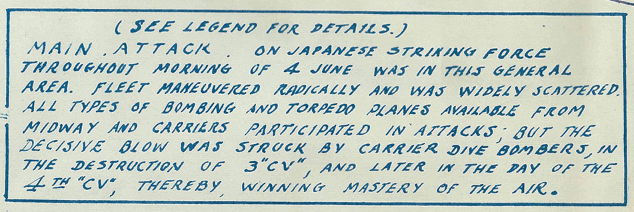 (SEE LEGEND FOR DETAILS.)
MAIN ATTACK ON JAPANESE STRIKING FORCE
THROUGHOUT MORNING OF 4 JUNE WAS IN THIS GENERAL
AREA. FLEET MANEUVERED RADICALLY AND WAS WIDELY SCATTERED.
ALL TYPES OF BOMBING AND TORPEDO PLANES AVAILABLE FROM
MIDWAY AND CARRIERS PARTICIPATED IN ATTACKS; BUT THE
DECISIVE BLOW WAS STRUCK BY CARRIER DIVE BOMBERS, IN
THE DESTRUCTION OF 3 "CV", AND LATER IN THE DAY OF THE
4TH "CV", THEREBY WINNING MASTERY OF THE AIR.